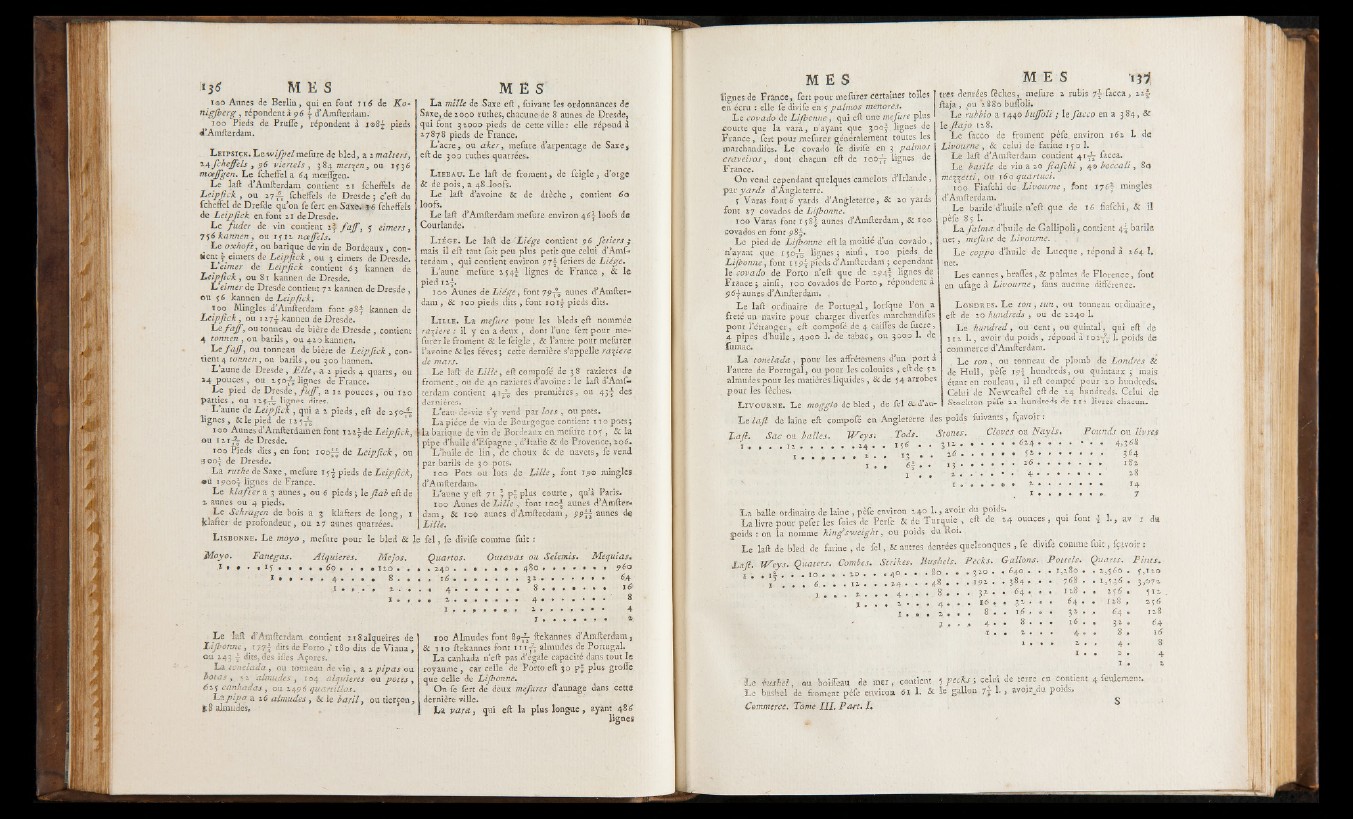 136 MES
100 Aunes de Berlin, qui en font 116 de Ko-
nigsberg, répondent à 96 d'Amsterdam.
100 Pieds de Prusse, répondent à 108 pieds
d'Amsterdam.
LEIPSICK. Le wispel mesure de bled, a 2 malters,
24 scheffels, 96 viertels, 384 metzen, ou 1536
mœssgen. Le scheffel a 64 mœssgen.
Le last d'Amsterdam contient 21 scheffels de
Leipsick, ou 27 scheffels de Dresde; c'est du
scheffel de Dresde qu'on se sert en Saxe. 36 scheffels
de Leipsick en font 21 de Dresde.
Le fuder de vin contient fass, 5 eimers,
756 kannen, ou 1512 nœssels.
Le oxhoft, ou barique de vin de Bordeaux, con-
tient eimers de Leipsick, ou 3 eimers de Dresde.
L'eimer de Leipsick contient 63 kannen de
Leipsick, ou 81 kannen de Dresde.
L'eimer de Dresde contient 72 kannen de Dresde,
ou 56 kannen de Leipsick.
100 Mingles d'Amsterdam font 98 kannen de
Leipsick, ou 127 kannen de Dresde.
Le fass, ou tonneau de bière de Dresde, contient
4 tonnen, ou barils, ou 420 kannen.
Le fass, ou tonneau de bière de Leipsick, con-
tient 4 tonnen, ou barils, ou 300 kannen.
L'aune de Dresde, Elle, a 2 pieds 4 quarts, ou
24 pouces, ou 250 lignes de France.
Le pied de Dresde, fuss, a 12 pouces, ou 120
parties, ou 125 lignes dites.
L'aune de Leipsick, qui a 2 pieds, est de 250
lignes, & le pied de 125
100 Aunes d'Amsterdam en font 122 de Leipsick,
ou 121 de Dresde.
100 Pieds dits, en font 100 de Leipsick, ou
100 de Dresde.
La ruthe de Saxe, mesure 15 pieds de Leipsick,
ou 1900 lignes de France.
Le klafter a 3 aunes, ou 6 pieds; le stab est de
2 aunes ou 4 pieds.
Le Schragen de bois a 3 klafters de long, 1
klafter de profondeur, ou 27 aunes quarrées.
MES
La mille de Saxe est, suivant les ordonnances de
Saxe, de 2000 ruthes, chacune de 8 aunes de Dresde,
qui font 32000 pieds de cette ville: elle répond à
27878 pieds de France.
L'acre, ou aker, mesure d'arpentage de Saxe,
est de 300 ruthes quarrées.
LIEBAU. Le last de froment, de seigle, d'orge
& de pois, a 48 loofs.
Le last d'avoine & de drêche, contient 60
loofs.
Le last d'Amsterdam mesure environ 46 loofs de
Courlande.
LIÉGE. Le last de Liége contient 96 setiers;
mais il est tant soit peu plus petit que celui d'Ams-
terdam, qui contient environ 97 setiers de Liége.
L'aune mesure 254 lignes de France, & le
pied 12
100 Aunes de Liége, font 79 aunes d'Amster-
dam, & 100 pieds dits, font 101 pieds dits.
LILLE. La mesure pour les bleds est nommée
raziere: il y en a deux, dont l'une sert pour me-
surer le froment & le seigle, & l'autre pour mesurer
l'avoine & les féves; cette dernière s'appelle raziere
de mars.
Le last de Lille, est composé de 38 razieres de
froment, ou de 40 razieres d'avoine: le last d'Ams-
terdam contient 41 des premières, ou 43 des
dernières.
L'eau-de-vie s'y vend par lots, ou pots.
La pièce de vin de Bourgogne contient 110 pots;
la barique de vin de Bordeaux en mesure 105, & la
pipe d'huile d'Espagne, d'Italie & de Provence, 206.
L'huile de lin, de choux & de navets, se vend
par barils de 30 pots.
100 Pots ou lots de Lille, font 190 mingles
d'Amsterdam.
L'aune y est 71 p plus courte, qu'à Paris.
100 Aunes de Lille, font 100 aunes d'Amster-
dam, & 100 aunes d'Amsterdam, 99 aunes de
Lille.
LISBONNE. Le moyo, mesure pour le bled & le sel, se divise comme suit:
Moyo. Fanegas. Alquieres. Mejos. Quartos. Outavas ou Selemis. Mequias.
1 . . . 15 . . . . . 60 . . . . 120 . . . . 240 . . . . . . 480 . . . . . . 960
1 . . . . . 4 . . . . 8 . . . . 16 . . . . . . 32 . . . . . . 64
1 . . . . 2 . . . . 4 . . . . . . 8 . . . . . . 16
1 . . . . 2 . . . . . . 4 . . . . . . 8
1 . . . . . . 2 . . . . . . 4
1 . . . . . . 2
Le last d'Amsterdam contient 218 alqueires de
Lisbonne, 179 dits de Porto, 180 dits de Viana,
ou 243 dits, des isles Açores.
La tonelada, ou tonneau de vin, a 2 pipas ou
botas, 52 almudes, 104 alquieres ou potes,
625 canhadas, ou 2496 quartillos.
La pipa a 26 almudes, & le baril, ou tierçon,
18 almudes.
100 Almudes font 89 stekannes d'Amsterdam,
& 310 stekannes font 111 almudes de Portugal.
La canhada n'est pas d'égale capacité dans tout le
royaume, car celle de Porto est 30 p plus grosse
que celle de Lisbonne.
On se sert de deux mesures d'aunage dans cette
dernière ville.
La vara, qui est la plus longue, ayant 486
lignes
MES
lignes de France, sert pour mesurer certaines toiles
en écru: elle se divise en 5 palmos menores.
Le covado de Lisbonne, qui est une mesure plus
courte que la vara, n'ayant que 300 lignes de
France, sert pour mesurer généralement toutes les
marchandises. Le covado se divise en 3 palmos
craveiros, dont chacun est de 100 lignes de
France.
On vend cependant quelques camelots d'Irlande,
par yards d'Angleterre.
5 Varas font 6 yards d'Angleterre, & 20 yards
font 27 covados de Lisbonne.
100 Varas font 158 aunes d'Amsterdam, & 100
covados en font 98
Le pied de Lisbonne est la moitié d'un covado,
n'ayant que 150 lignes; ainsi, 100 pieds de
Lisbonne, font 119 pieds d'Amsterdam; cependant
le covado de Porto n'est que de 294 lignes de
France; ainsi, 100 covados de Porto, répondent à
96 aunes d'Amsterdam.
Le last ordinaire de Portugal, lorsque l'on a
freté un navire pour charger diverses marchandises
pour l'étranger, est composé de 4 caisses de sucre,
4 pipes d'huile, 4000 l. de tabac, ou 3000 l. de
sumac.
La tonelada, pour les affrétemens d'un port à
l'autre de Portugal, ou pour les colonies, est de 52
almudes pour les matières liquides, & de 54 arrobes
pour les sèches.
LIVOURNE. Le moggio de bled, de sel & d'au-
MES 137
tres denrées sèches, mesure 2 rubis 7 sacca, 22
staja, ou 2880 bussoli.
Le rubbio a 1440 bussoli; le sacco en a 384, &
le stajo 128.
Le sacco de froment pèse environ 162 l. de
Livourne, & celui de farine 150 l.
Le last d'Amsterdam contient 41 sacca.
Le barile de vin a 20 fiaschi, 40 boccali, 80
mezzetti, ou 160 quartuci.
100 Fiaschi de Livourne, font 176 mingles
d'Amsterdam.
Le barile d'huile n'est que de 16 fiaschi, & il
pèse 85 l.
La salma d'huile de Gallipoli, contient 4 barils
net, mesure de Livourne.
Le coppo d'huile de Lucque, répond à 264 l.
net.
Les cannes, brasses, & palmes de Florence, sont
en usage à Livourne, sans aucune différence.
LONDRES. Le ton, tun, ou tonneau ordinaire,
est de 20 hundreds, ou de 2240 l.
Le hundred, ou cent, ou quintal, qui est de
112 l., avoir du poids, répond à 102 l. poids de
commerce d'Amsterdam.
Le ton, ou tonneau de plomb de Londres &
de Hull, pèse 19 hundreds, ou quintaux; mais
étant en rouleau, il est compté pour 20 hundreds.
Celui de Newcastel est de 24 hundreds. Celui de
Stockton pèse 22 hundreds de 112 livres chacun.
Le last de laine est composé en Angleterre des poids suivants, sçavoir:
Last. Sac ou balles. Weys. Tods. Stones. Cloves ou Nayls. Pounds ou livres
1 . . . . 12 . . . . . . . 24 . . 156 . . 312 . . . . . . . 624 . . . . . . 4,368
1 . . . . . . 2 . . 13 . . 26 . . . . . . . 52 . . . . . . 364
1 . . 6½ . . 13 . . . . . . . 26 . . . . . . 182
1 . . 2 . . . . . . . 4 . . . . . . 28
1 . . . . . . . 2 . . . . . . 14
1 . . . . . . 7
La balle ordinaire de laine, pèse environ 240 l., avoir du poids.
La livre pour peser les soies de Perse & de Turquie, est de 24 ounces, qui font l., av r du
poids: on la nomme king'sweight, ou poids du Roi.
Le last de bled de farine, de sel, & autres denrées quelconques, se divise comme suit, sçavoir:
Last. Weys. Quaters. Combes. Strikes. Bushels. Pecks. Gallons. Potrels. Quarts. Pints.
1 . . 1 . . . 10 . . . 20 . . . 40 . . . 80 . . . 320 . . 640 . . . 1,280 . . 2,560 . 5,120
1 . . . . 6 . . . 12 . . . 24 . . . 48 . . . 192 . . 384 . . . 768 . . 1,536 . 3,072
1 . . . 2 . . . 4 . . . 8 . . . 32 . . 64 . . . 128 . . 256 . 512
1 . . . 2 . . . 4 . . . 16 . . 32 . . . 64 . . 128 . 256
1 . . . 2 . . . 8 . . 16 . . . 32 . . 64 . 128
1 . . . 4 . . 8 . . . 16 . . 32 . 64
1 . . 2 . . . 4 . . 8 . 16
1 . . . 2 . . 4 . 8
1 . . 2 . 4
1 . 2
Le bushel, ou boisseau de mer, contient 5 pecks; celui de terre en contient 4 seulement.
Le bushel de froment pèse environ 61 l. & le gallon 7 l., avoir du poids.
Commerce. Tome III. Part. I. S